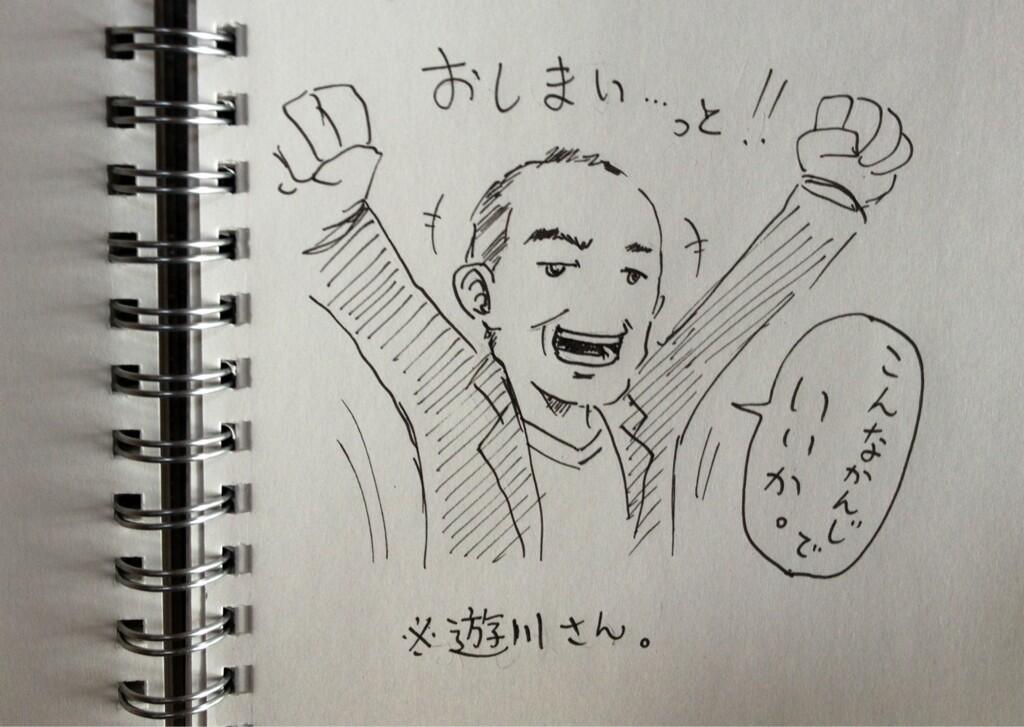 おしまい…っと!!
こんなかんじで
いいか。
※遊川さん。